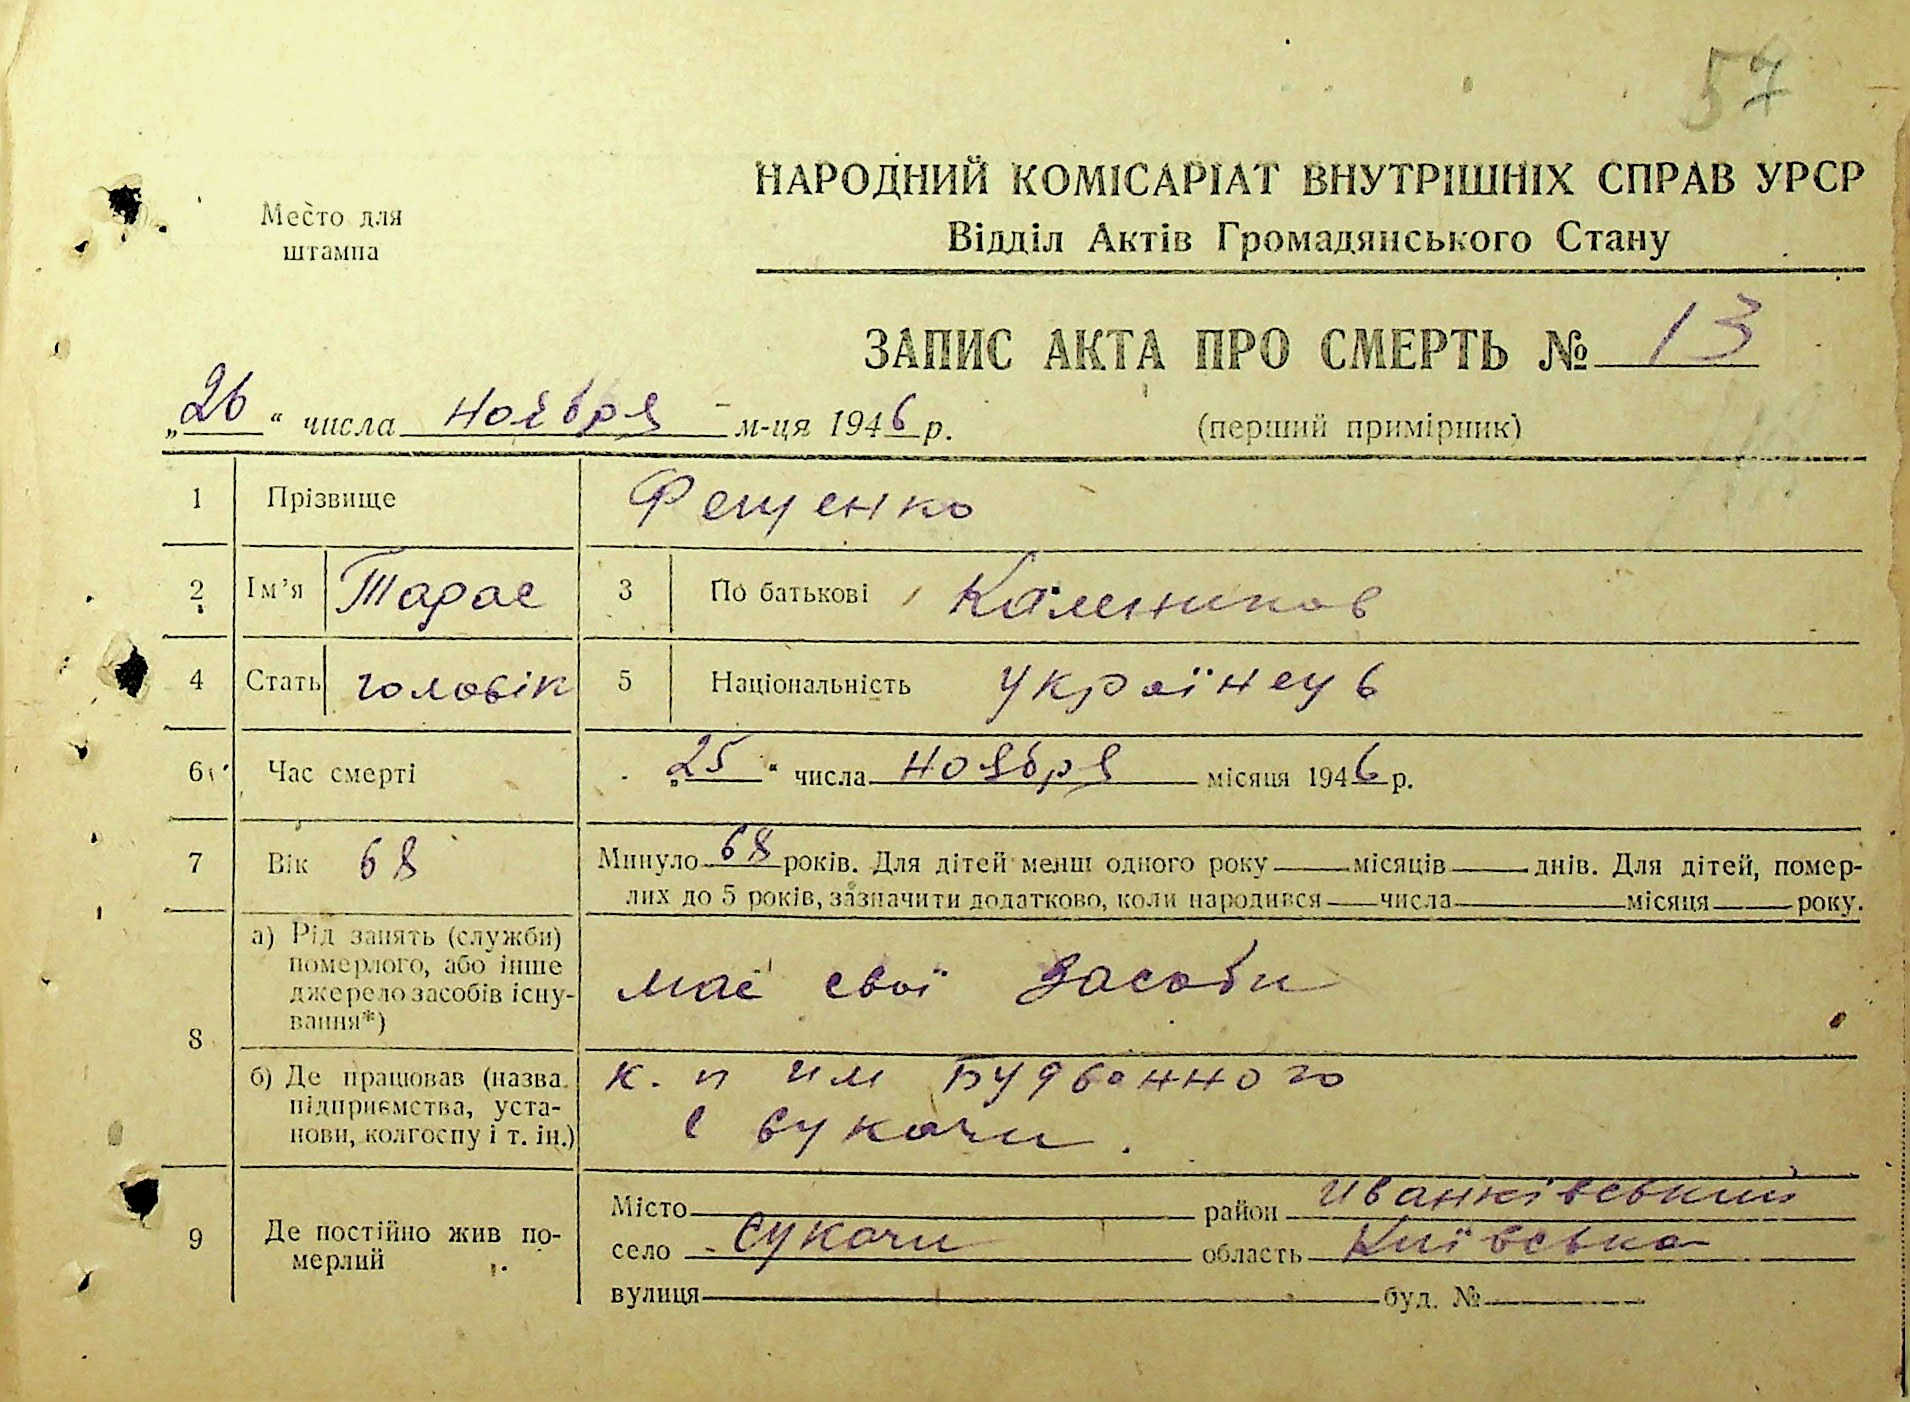 57
Место для
штампа
НАРОДНИЙ КОМІСАРІАТ ВНУТРІШНІХ СПРАВ УРСР
Відділ Актів Громадянського Стану
ЗАПИС АКТА ПРО СМЕРТЬ № 13
„26“ числа ноября м-ця 1946 р.
(перший примірник)
1 Прізвище Фещенко
2 Ім'я Тарас 3 По батькові Калеников
4 Стать чоловік 5 Національність українець
6 Час смерті „25“ числа ноября місяця 1946 р.
7 Вік 68 Минуло 68 років. Для дітей менш одного року місяців днів. Для дітей, помер-
лих до 5 років, зазначити додатково, коли народився числа місяця року.
8
а) Рід занять (служби)
померлого, або інше
джерело засобів існу-
вання*)
має свої засоби
б) Де працював (назва
підприємства, уста-
нови, колгоспу і т. ін.)
к. п им Будьонного
с Сукачи.
9 Де постійно жив по-
мерлий
Місто район Иванківський
село Сукачи область Київська
вулиця буд. №